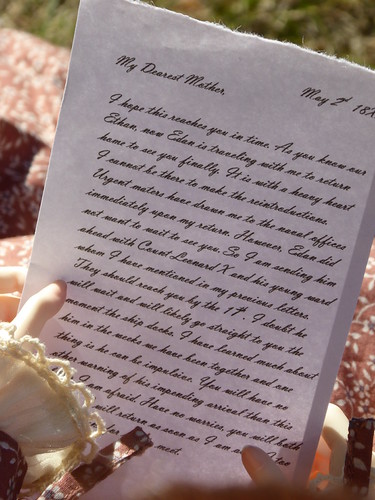 My Dearest Mother,
May 2nd 18X
I hope this reaches you in time. As you know our
Ethan, now Edan is traveling with me to return
home to see you finally. It is with a heavy heart
I cannot be there to make the reintroductions.
Urgent maters have drawn me to the naval offices
immediately upon my return. However Edan did
not want to wait to see you. So I am sending him
ahead with Count Leonard X and his young ward
whom I have mentioned in my previous letters.
They should reach you by the 1th. I doubt he
will wait and will likely go straight to you the
moment the ship docks. I have learned much about
him in the weeks we have been together and one
thing is he can be impulsive. You will have no
warning of his impending arrival then this
I am afraid. Have no worries, you will both
will return as soon as I am